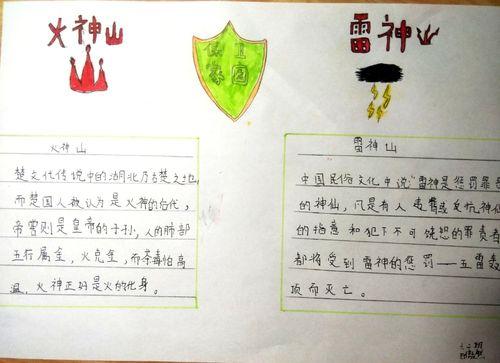 火神山
保卫
家园
雷神山
火神山
楚文化传说中的湖北乃古楚之地,
而楚国人被认为是火神的后代,
帝喾则是皇帝的子孙,人的肺部
五行属金,火克金,而茶毒怕高
温,火神正好是火的化身。
雷神山
中国民俗文化中说"雷神是惩罚罪恶
的神仙,凡是有人违背或反抗神仙
的指意和犯下不可饶恕的罪责者
都将受到雷神的惩罚——五雷轰
顶而灭亡。